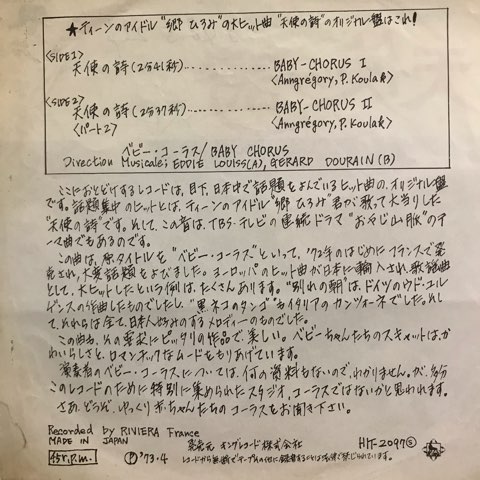 ★ティーンのアイドル"郷 ひろみ"の大ヒット曲"天使の詩"のオリジナル盤はこれ!
<SIDE1>
天使の詩(2分41秒)..................BABY-CHORUS I
<Anngrégory, P. Koula>
<SIDE2>
天使の詩(2分37秒)..................BABY-CHORUS II
<パート2> <Anngrégory, P. Koula>
ベビー・コーラス/BABY CHORUS
Direction Musicale; EDDIE LOUISS(A), GERARD DOURAIN(B)
ここにおとどけするレコードは、目下、日本中で話題をよんでいるヒット曲の、オリジナル盤
です。話題集中のヒットとは、ティーンのアイドル"郷ひろみ"君が歌って大当りした
"天使の詩"です。そして、この曲は、TBS・テレビの連続ドラマ"おやじ山脈"のテ
ーマ曲でもあるのです。
この曲は、原タイトルを"ベビー・コーラス"といって、'72年のはじめにフランスで発
売され、大変話題をよびました。ヨーロッパのヒット曲が日本に輸入され、歌謡曲
として、大ヒットしたという例は、たくさんあります。"別れの朝"は、ドイツのウド・ユル
ゲンスの作曲したものでしたし、"黒ネコのタンゴ"もイタリアのカンツォーネでした。そし
て、それらは全て、日本人好みのするメロディーのものでした。
この曲も、その要求にピッタリの作品で、美しい。ベビーちゃんたちのスキャットは、か
わいらしさと、ロマンチックなムードをもりあげています。
演奏者のベビー・コーラスについては、何の資料もないので、わかりません。が、多分
このレコードのために特別に集められたスタジオ、コーラスではないかと思われます。
さあ、どうぞ、ゆっくり赤ちゃんたちのコーラスをお聞き下さい。
Recorded by RIVIERA France
MADE IN JAPAN 発売元 キングレコード株式会社 HIT-2097Ⓢ
45r.p.m. Ⓟ'73・4 レコードから無断でテープその他に録音することは法律で禁じられています。